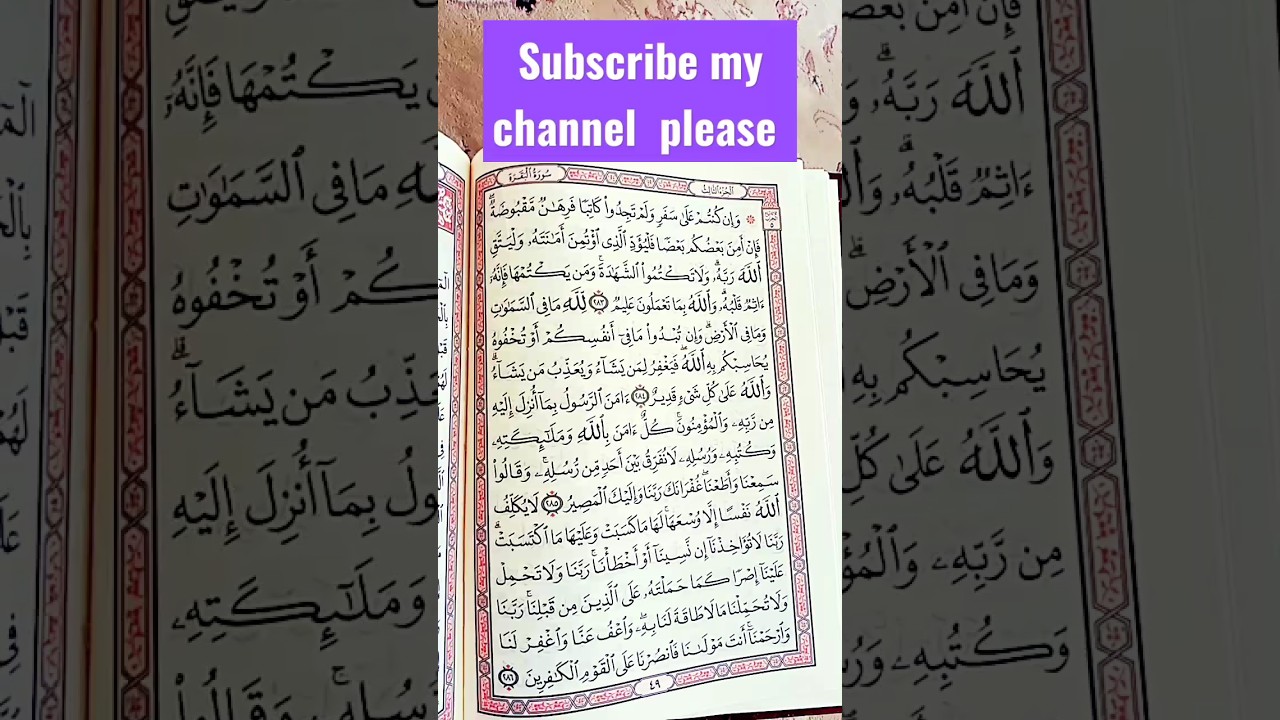 Subscribe my
channel please
سُورَةُ البَقَرَةِ
الجُزْءُ الثَّالِثُ
۞ وَإِن كُنتُمْ عَلَىٰ سَفَرٍ وَلَمْ تَجِدُوا۟ كَاتِبًا فَرِهَـٰنٌ مَّقْبُوضَةٌ ۖ
فَإِنْ أَمِنَ بَعْضُكُم بَعْضًا فَلْيُؤَدِّ ٱلَّذِى ٱؤْتُمِنَ أَمَـٰنَتَهُۥ وَلْيَتَّقِ
ٱللَّهَ رَبَّهُۥ ۗ وَلَا تَكْتُمُوا۟ ٱلشَّهَـٰدَةَ ۚ وَمَن يَكْتُمْهَا فَإِنَّهُۥٓ
ءَاثِمٌ قَلْبُهُۥ ۗ وَٱللَّهُ بِمَا تَعْمَلُونَ عَلِيمٌ ٢٨٣ لِّلَّهِ مَا فِى ٱلسَّمَـٰوَٰتِ
وَمَا فِى ٱلْأَرْضِ ۗ وَإِن تُبْدُوا۟ مَا فِىٓ أَنفُسِكُمْ أَوْ تُخْفُوهُ
يُحَاسِبْكُم بِهِ ٱللَّهُ ۖ فَيَغْفِرُ لِمَن يَشَآءُ وَيُعَذِّبُ مَن يَشَآءُ ۗ
وَٱللَّهُ عَلَىٰ كُلِّ شَىْءٍ قَدِيرٌ ٢٨٤ ءَامَنَ ٱلرَّسُولُ بِمَآ أُنزِلَ إِلَيْهِ
مِن رَّبِّهِۦ وَٱلْمُؤْمِنُونَ ۚ كُلٌّ ءَامَنَ بِٱللَّهِ وَمَلَـٰٓئِكَتِهِۦ
وَكُتُبِهِۦ وَرُسُلِهِۦ لَا نُفَرِّقُ بَيْنَ أَحَدٍ مِّن رُّسُلِهِۦ ۚ وَقَالُوا۟
سَمِعْنَا وَأَطَعْنَا ۖ غُفْرَانَكَ رَبَّنَا وَإِلَيْكَ ٱلْمَصِيرُ ٢٨٥ لَا يُكَلِّفُ
ٱللَّهُ نَفْسًا إِلَّا وُسْعَهَا ۚ لَهَا مَا كَسَبَتْ وَعَلَيْهَا مَا ٱكْتَسَبَتْ ۗ
رَبَّنَا لَا تُؤَاخِذْنَآ إِن نَّسِينَآ أَوْ أَخْطَأْنَا ۚ رَبَّنَا وَلَا تَحْمِلْ
عَلَيْنَآ إِصْرًا كَمَا حَمَلْتَهُۥ عَلَى ٱلَّذِينَ مِن قَبْلِنَا ۚ رَبَّنَا
وَلَا تُحَمِّلْنَا مَا لَا طَاقَةَ لَنَا بِهِۦ ۖ وَٱعْفُ عَنَّا وَٱغْفِرْ لَنَا
وَٱرْحَمْنَآ ۚ أَنتَ مَوْلَىٰنَا فَٱنصُرْنَا عَلَى ٱلْقَوْمِ ٱلْكَـٰفِرِينَ ٢٨٦
٤٩